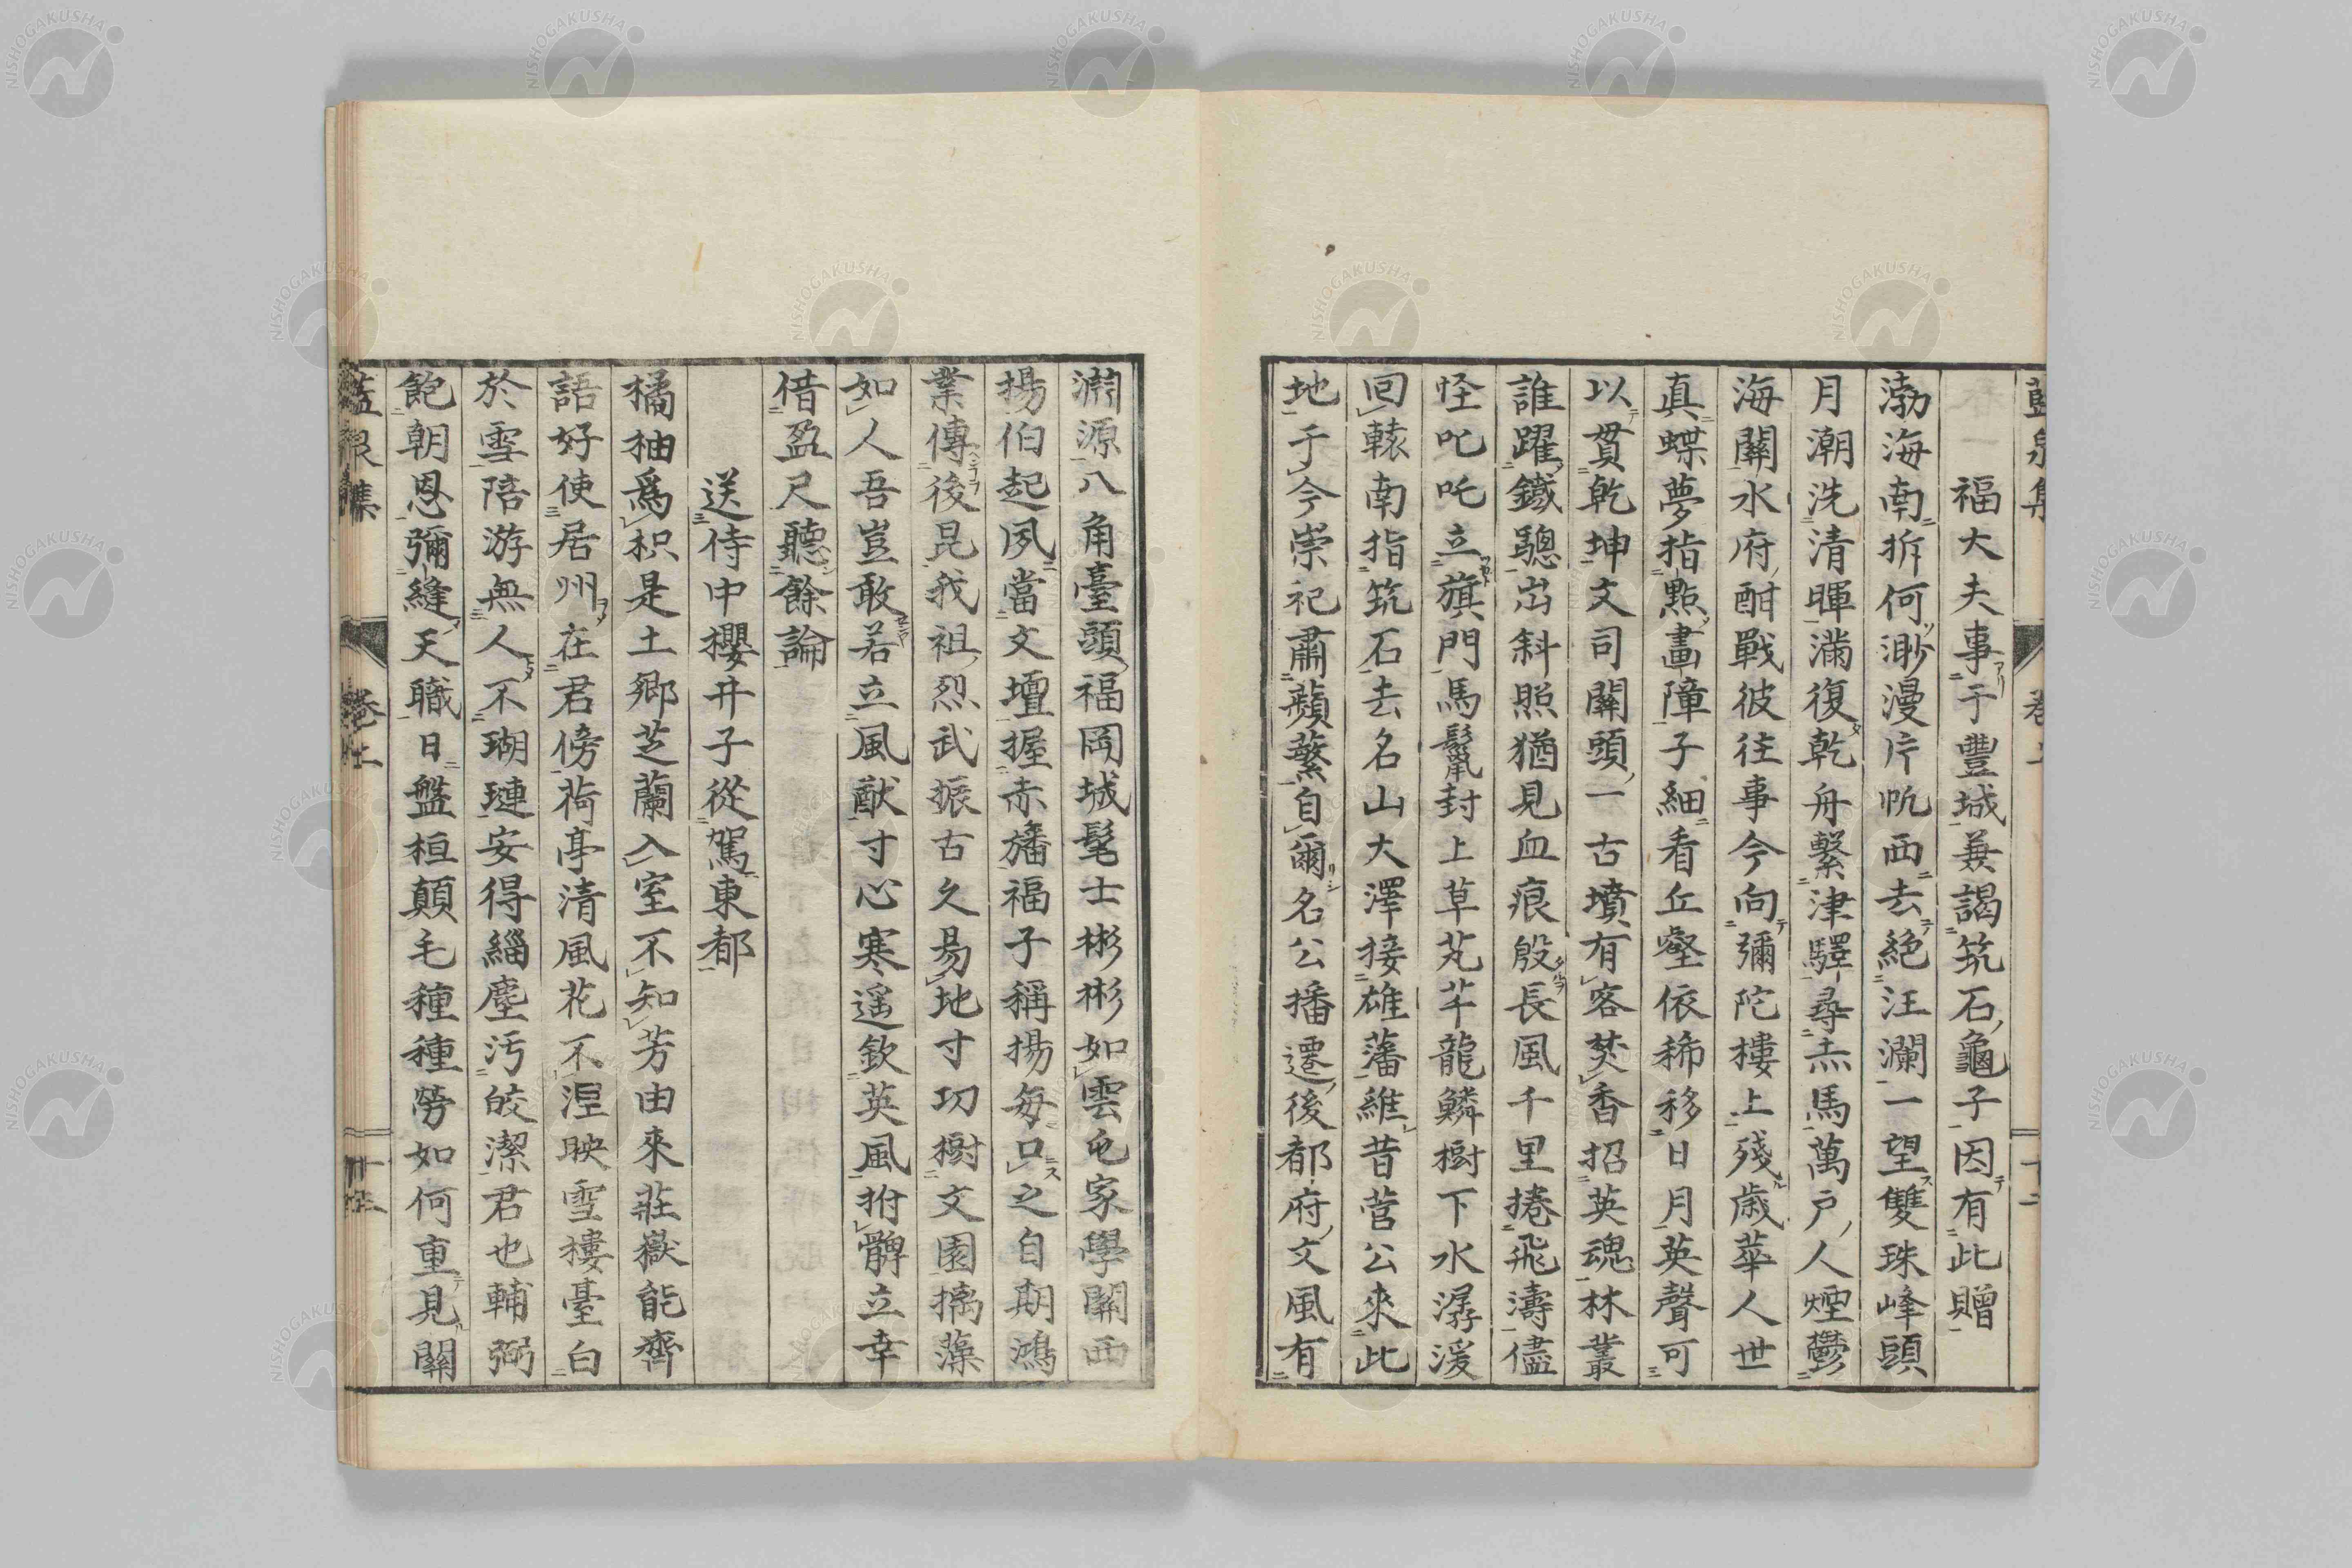 藍泉集 卷上 十二
福大夫事于豐城兼謁筑石龜子因有此贈
渤海南拆何渺漫片帆西去絕汪瀾一望雙珠峰頭
月潮洗清暉滿復乾舟繫津驛尋赤馬萬戶人煙鬱
海關水府酣戰彼往事今向彌陀樓上殘歲華人世
真蝶夢指點畫障子細看丘壑依稀移日月英聲可
以貫乾坤文司關頭一古墳有客焚香招英魂林叢
誰躍鐵驄出斜照猶見血痕殷長風千里捲飛濤儘
怪叱吒立旗門馬鬣封上草芃芊龍鱗樹下水潺湲
回轅南指筑石去名山大澤接雄藩維昔菅公來此
地于今崇祀肅蘋蘩自爾名公播遷後都府文風有
淵源八角臺頭福岡城髦士彬彬如雲屯家學關西
楊伯起夙當文壇握赤旛福子稱揚每口之自期鴻
業傳後昆我祖烈武振古久易地寸功樹文園摛藻
如人吾豈敢若立風猷寸心寒遙欽英風拊髀立幸
借盈尺聽餘論
送侍中櫻井子從駕東都
橘柚爲枳是土鄉芝蘭入室不知芳由來莊嶽能齊
語好使居州在君傍荷亭清風花不涅映雪樓臺白
於雪陪游無人不瑚璉安得緇塵汚皎潔君也輔弼
飽朝恩彌縫天職日盤桓顛毛種種勞如何重見關
藍泉集 卷上
NISHOGAKUSHA